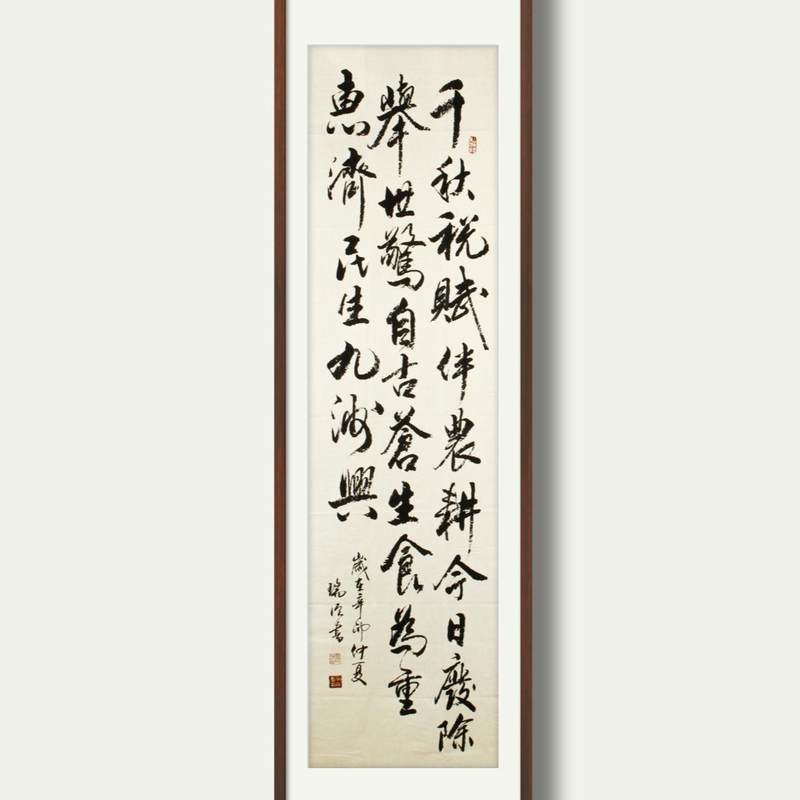 千秋税賦伴農耕今日廢除
舉世驚自古蒼生食為重
惠濟民生九洲興
歲在辛卯仲夏
瑞
書